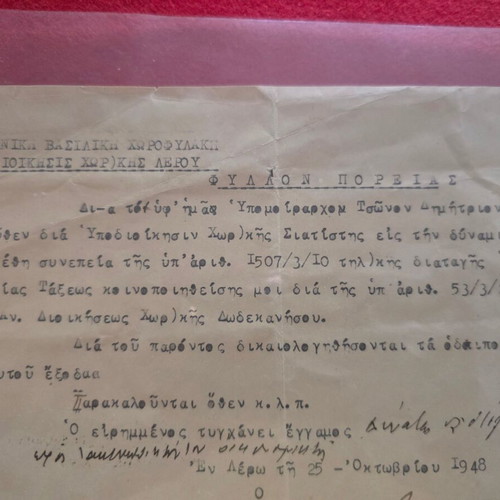 ΝΙΚΗ ΒΑΣΙΛΙΚΗ ΧΩΡΟΦΥΛΑΚΗ
ΙΟΙΚΗΣΙΣ ΧΩΡ)ΚΗΣ ΛΕΡΟΥ
ΦΥΛΛΟΝ ΠΟΡΕΙΑΣ
Δι-α τοῦ ὑφ' ἡμᾶς Ὑπομοίραρχον Τσῶνον Δημήτριον
ὅθεν διά Ὑποδιοίκησιν Χωρ)κῆς Σιατίστης εἰς τήν δύναμι
έθη συνεπεία τῆς ὑπ' ἀριθ. 1507/3/10 τηλ)κῆς διαταγῆς
ίας Τάξεως κοινοποιηθείσης μοι διά τῆς ὑπ ἀριθ. 53/3/
Αν. Διοικήσεως Χωρ)κῆς Δωδεκανήσου.
Διά τοῦ παρόντος δικαιολογηθήσονται τά ὁδοιπο
υτοῦ ἔξοδα
Παρακαλοῦνται ὅθεν κ.λ.π.
Ὁ εἰρημμένος τυγχάνει ἔγγαμος
Ἐν Λέρῳ τῇ 25 -Ὀκτωβρίου 1948
Ο